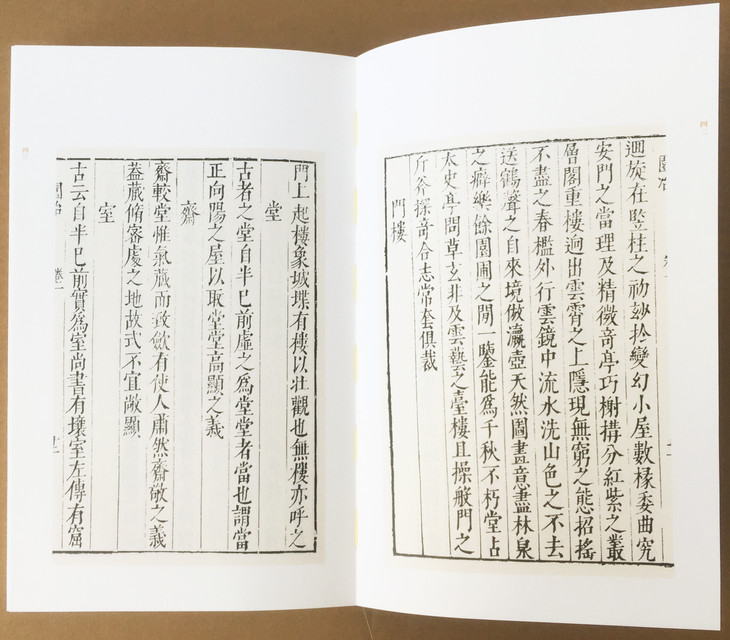 園冶 卷一
迴旋在竪柱之初玅扵變幻小屋數椽委曲究
安門之當理及精微竒亭巧榭搆分紅紫之叢
層閣重樓迥出雲霄之上隱現無窮之態招搖
不盡之春檻外行雲鏡中流水洗山色之不去
送鶴聲之自來境倣瀛壺天然圖畫意盡林泉
之癖樂餘園圃之間一鑒能爲千秋不朽堂占
太史亭問草玄非及雲藝之臺樓且操般門之
斤斧探竒合志常套俱裁
門樓
門上起樓象城堞有樓以壯觀也無樓亦呼之
堂
古者之堂自半巳前虛之爲堂堂者當也謂當
正向陽之屋以取堂堂高顯之義
齋
齋較堂惟氣藏而致斂有使人肅然齋敬之義
蓋藏脩密處之地故式不宜敞顯
室
古云自半巳前實爲室尚書有壤室左傳有窟
園冶 卷一